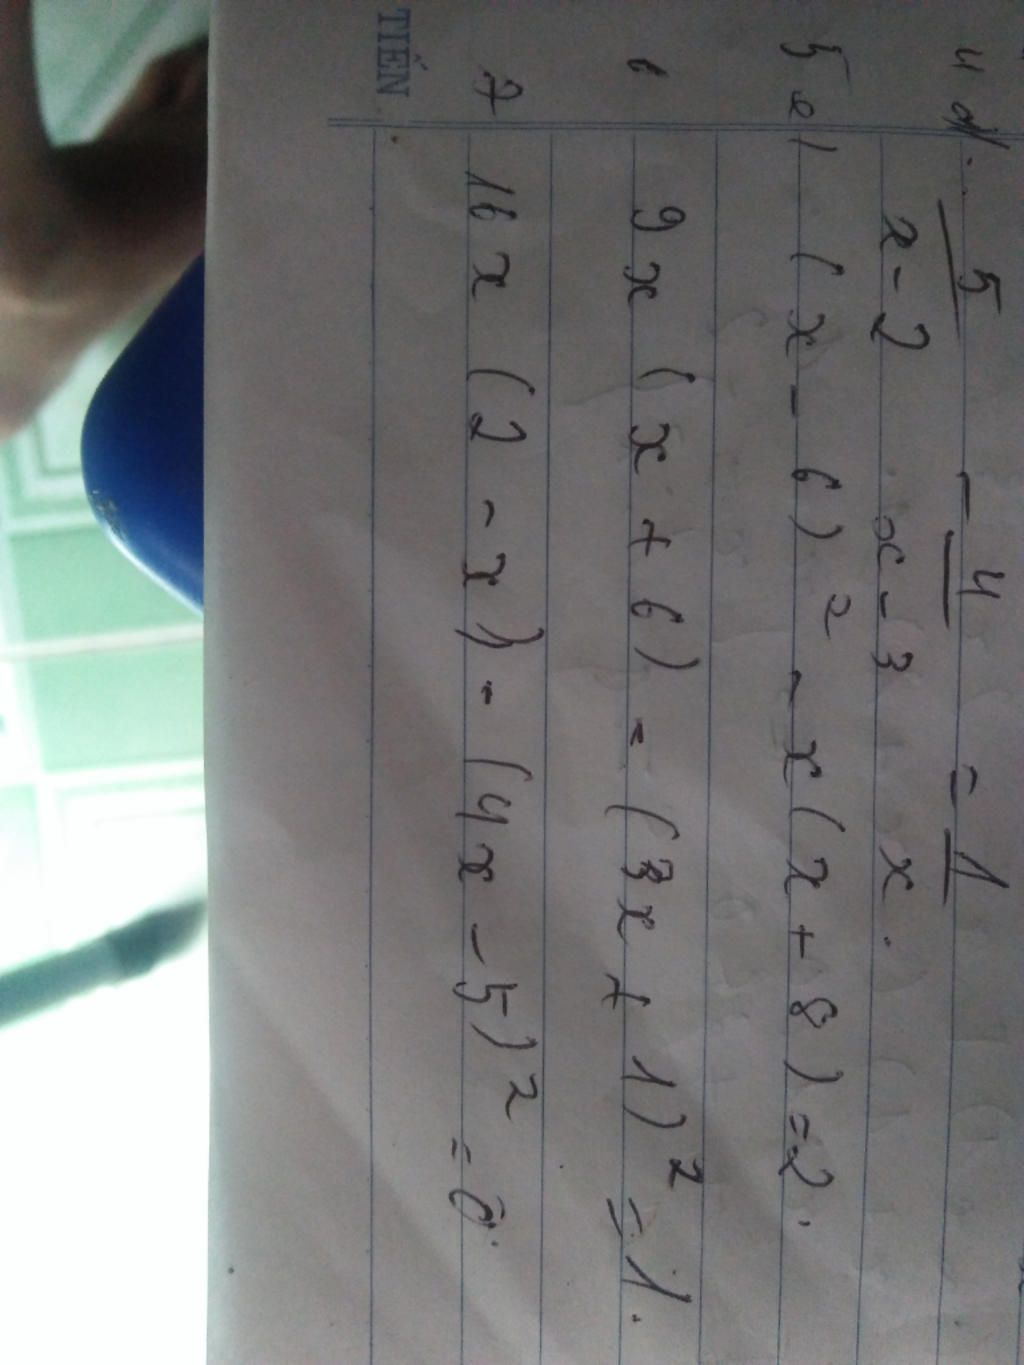 4 d. 5/(x-2) - 4/(x-3) = 1/x.
5 e) (x - 6)² - x(x + 8) = 2.
6 9x (x + 6) - (3x + 1)² = 1.
7 16x (2 - x) - (4x - 5)² = 0.
TIẾN